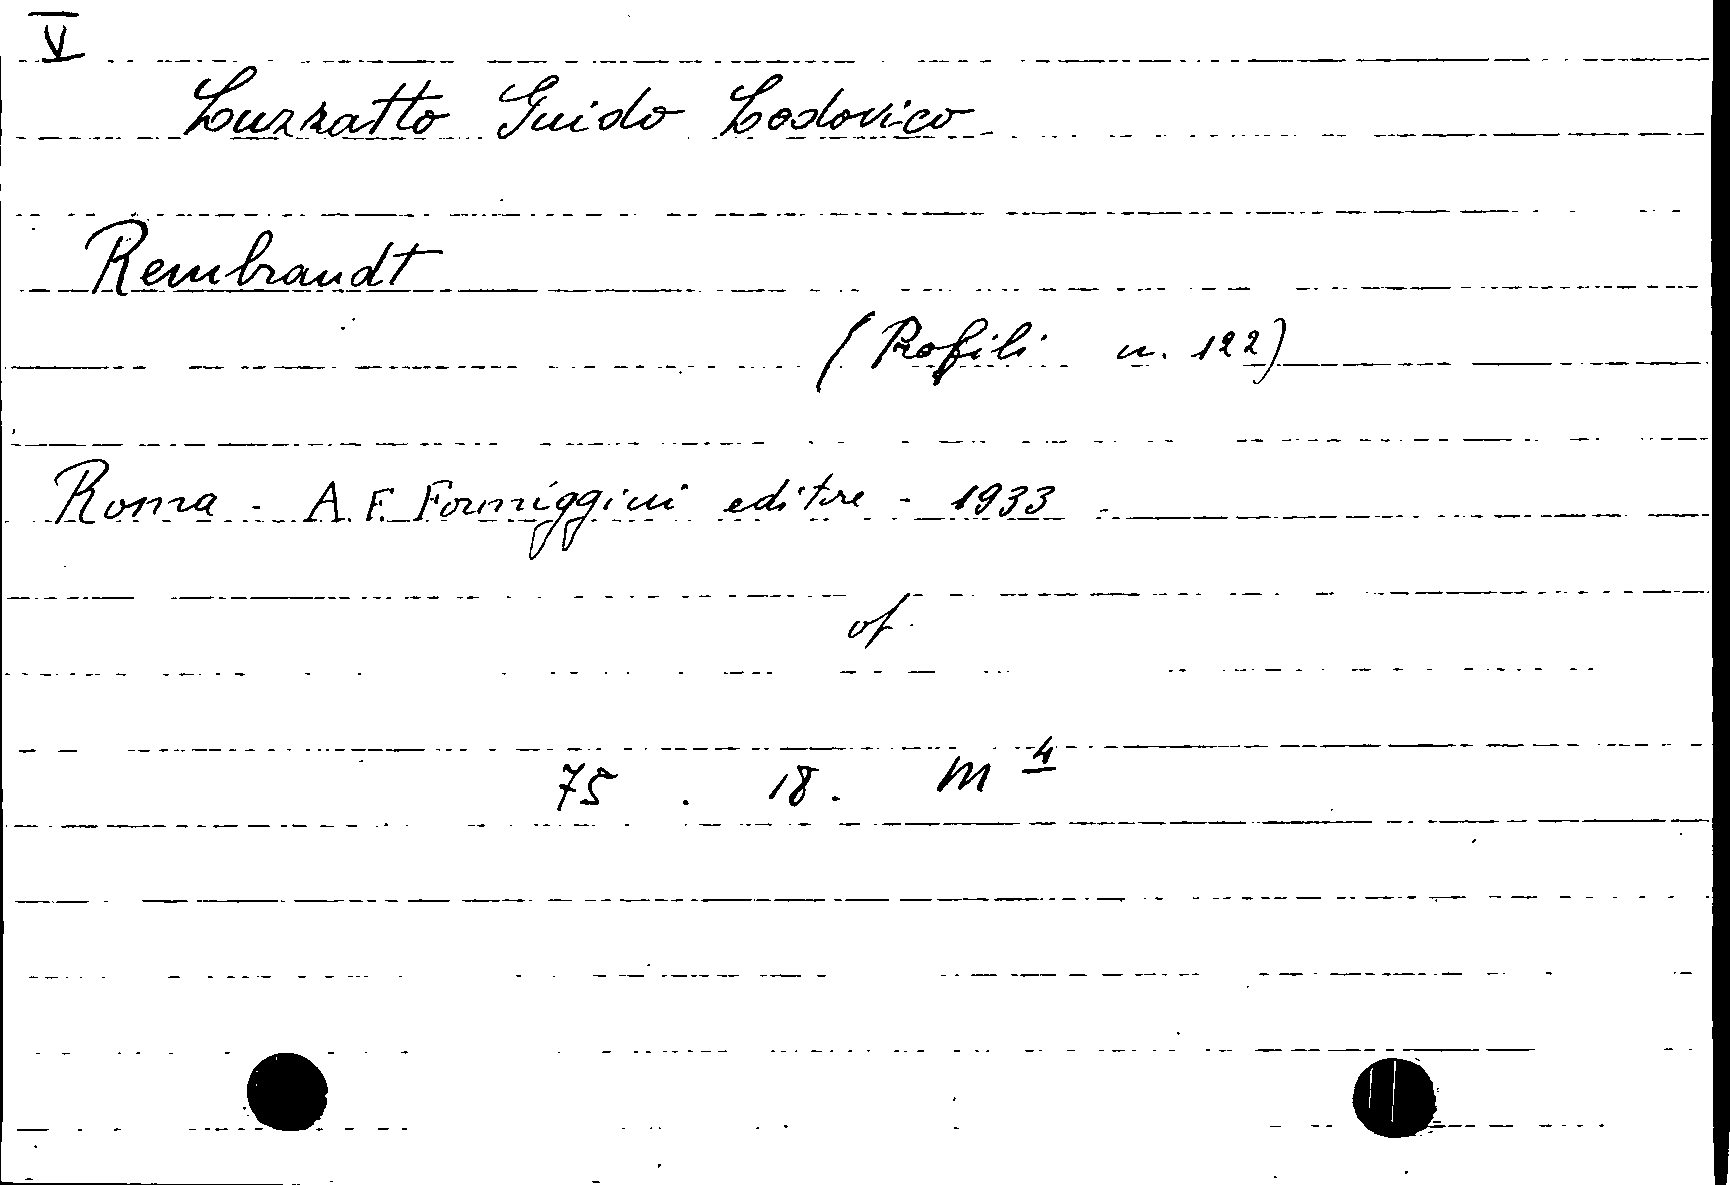 V
Luzzatto Guido Lodovico
Rembrandt
(Profili n. 122)
Roma - A. F. Formiggini editore - 1933
of
75 . 18. m 4